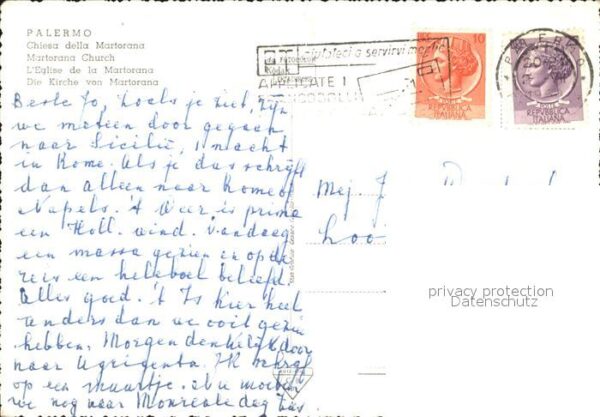 PALERMO
Chiesa della Martorana
Martorana Church
L'Eglise de la Martorana
Die Kirche von Martorana
aiutateci a servirvi meglio
APPLICATE I
10
REPUBBLICA
ITALIANA
REPUBBLICA
ITALIANA
Beste Jo, Zoals je ziet, zijn
we meteen door gegaan
naar Sicilië, 1 nacht
in Rome. Als je dus schrijft
dan alleen naar Rome of
Napels. 't Weer is prima
een Holl. wind. Vandaag
een massa gezien en op de
reis een heleboel beleefd
Alles goed. 't Is hier heel
anders dan we ooit gezien
hebben. Morgen denkelijk door
naar Agrigento. Ik schrijf
op een muurtje. Nu moeten
we nog naar Monreale dag
Mej. J
Loo
privacy protection
Datenschutz